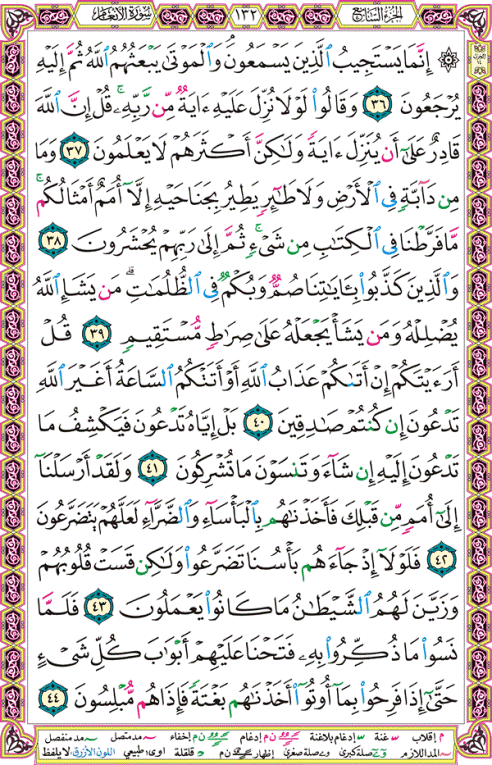 الجزء السابع ١٣٢ سورة الأنعام
۞ إِنَّمَا يَسْتَجِيبُ ٱلَّذِينَ يَسْمَعُونَ وَٱلْمَوْتَىٰ يَبْعَثُهُمُ ٱللَّهُ ثُمَّ إِلَيْهِ
يُرْجَعُونَ ٣٦ وَقَالُوا۟ لَوْلَا نُزِّلَ عَلَيْهِ ءَايَةٌ مِّن رَّبِّهِۦ ۚ قُلْ إِنَّ ٱللَّهَ
قَادِرٌ عَلَىٰٓ أَن يُنَزِّلَ ءَايَةً وَلَـٰكِنَّ أَكْثَرَهُمْ لَا يَعْلَمُونَ ٣٧ وَمَا
مِن دَآبَّةٍ فِى ٱلْأَرْضِ وَلَا طَـٰٓئِرٍ يَطِيرُ بِجَنَاحَيْهِ إِلَّآ أُمَمٌ أَمْثَالُكُم ۚ
مَّا فَرَّطْنَا فِى ٱلْكِتَـٰبِ مِن شَىْءٍ ۚ ثُمَّ إِلَىٰ رَبِّهِمْ يُحْشَرُونَ ٣٨
وَٱلَّذِينَ كَذَّبُوا۟ بِـَٔايَـٰتِنَا صُمٌّ وَبُكْمٌ فِى ٱلظُّلُمَـٰتِ ۗ مَن يَشَإِ ٱللَّهُ
يُضْلِلْهُ وَمَن يَشَأْ يَجْعَلْهُ عَلَىٰ صِرَٰطٍ مُّسْتَقِيمٍ ٣٩ قُلْ
أَرَءَيْتَكُمْ إِنْ أَتَىٰكُمْ عَذَابُ ٱللَّهِ أَوْ أَتَتْكُمُ ٱلسَّاعَةُ أَغَيْرَ ٱللَّهِ
تَدْعُونَ إِن كُنتُمْ صَـٰدِقِينَ ٤٠ بَلْ إِيَّاهُ تَدْعُونَ فَيَكْشِفُ مَا
تَدْعُونَ إِلَيْهِ إِن شَآءَ وَتَنسَوْنَ مَا تُشْرِكُونَ ٤١ وَلَقَدْ أَرْسَلْنَآ
إِلَىٰٓ أُمَمٍ مِّن قَبْلِكَ فَأَخَذْنَـٰهُم بِٱلْبَأْسَآءِ وَٱلضَّرَّآءِ لَعَلَّهُمْ يَتَضَرَّعُونَ
٤٢ فَلَوْلَآ إِذْ جَآءَهُم بَأْسُنَا تَضَرَّعُوا۟ وَلَـٰكِن قَسَتْ قُلُوبُهُمْ
وَزَيَّنَ لَهُمُ ٱلشَّيْطَـٰنُ مَا كَانُوا۟ يَعْمَلُونَ ٤٣ فَلَمَّا
نَسُوا۟ مَا ذُكِّرُوا۟ بِهِۦ فَتَحْنَا عَلَيْهِمْ أَبْوَٰبَ كُلِّ شَىْءٍ
حَتَّىٰٓ إِذَا فَرِحُوا۟ بِمَآ أُوتُوٓا۟ أَخَذْنَـٰهُم بَغْتَةً فَإِذَا هُم مُّبْلِسُونَ ٤٤
م إقلاب س غنة س إدغام بلاغنة ن م إدغام ن م إخفاء مد متصل مد منفصل
المد اللازم وے صلة كبرى وے صلة صغرى إظهار ن م قلقلة اوى: طبيعي اللون الأزرق: لا يلفظ